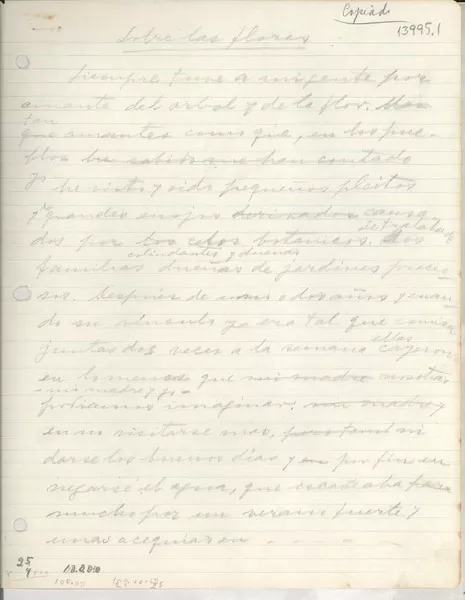 Copiado
13995.1
Sobre las flores
Siempre tuve a mi gente por
amante del arbol y de la flor. Mas
tan
que amantes como que, en los pue-
blos he sabido que han contado
yo he visto y oido pequeños pleitos
y grandes enojos derivados causa
dos por los celos botanicos.
colindantes y dueñas
familias dueñas de jardines precio
sos. Después de uno o dos años y cuan
do su vínculo ya era tal que comían
juntas dos veces a la semana ellas cayeron
en lo menos que mi madre nosotras
-mi madre y yo-
podíamos imaginar: mi madre y
en no visitarse mas, ni
darse los buenos días y en por fin en
negarse el agua, que escaseaba
mucho por un verano fuerte y
unas acequias en - - - - -
25
4